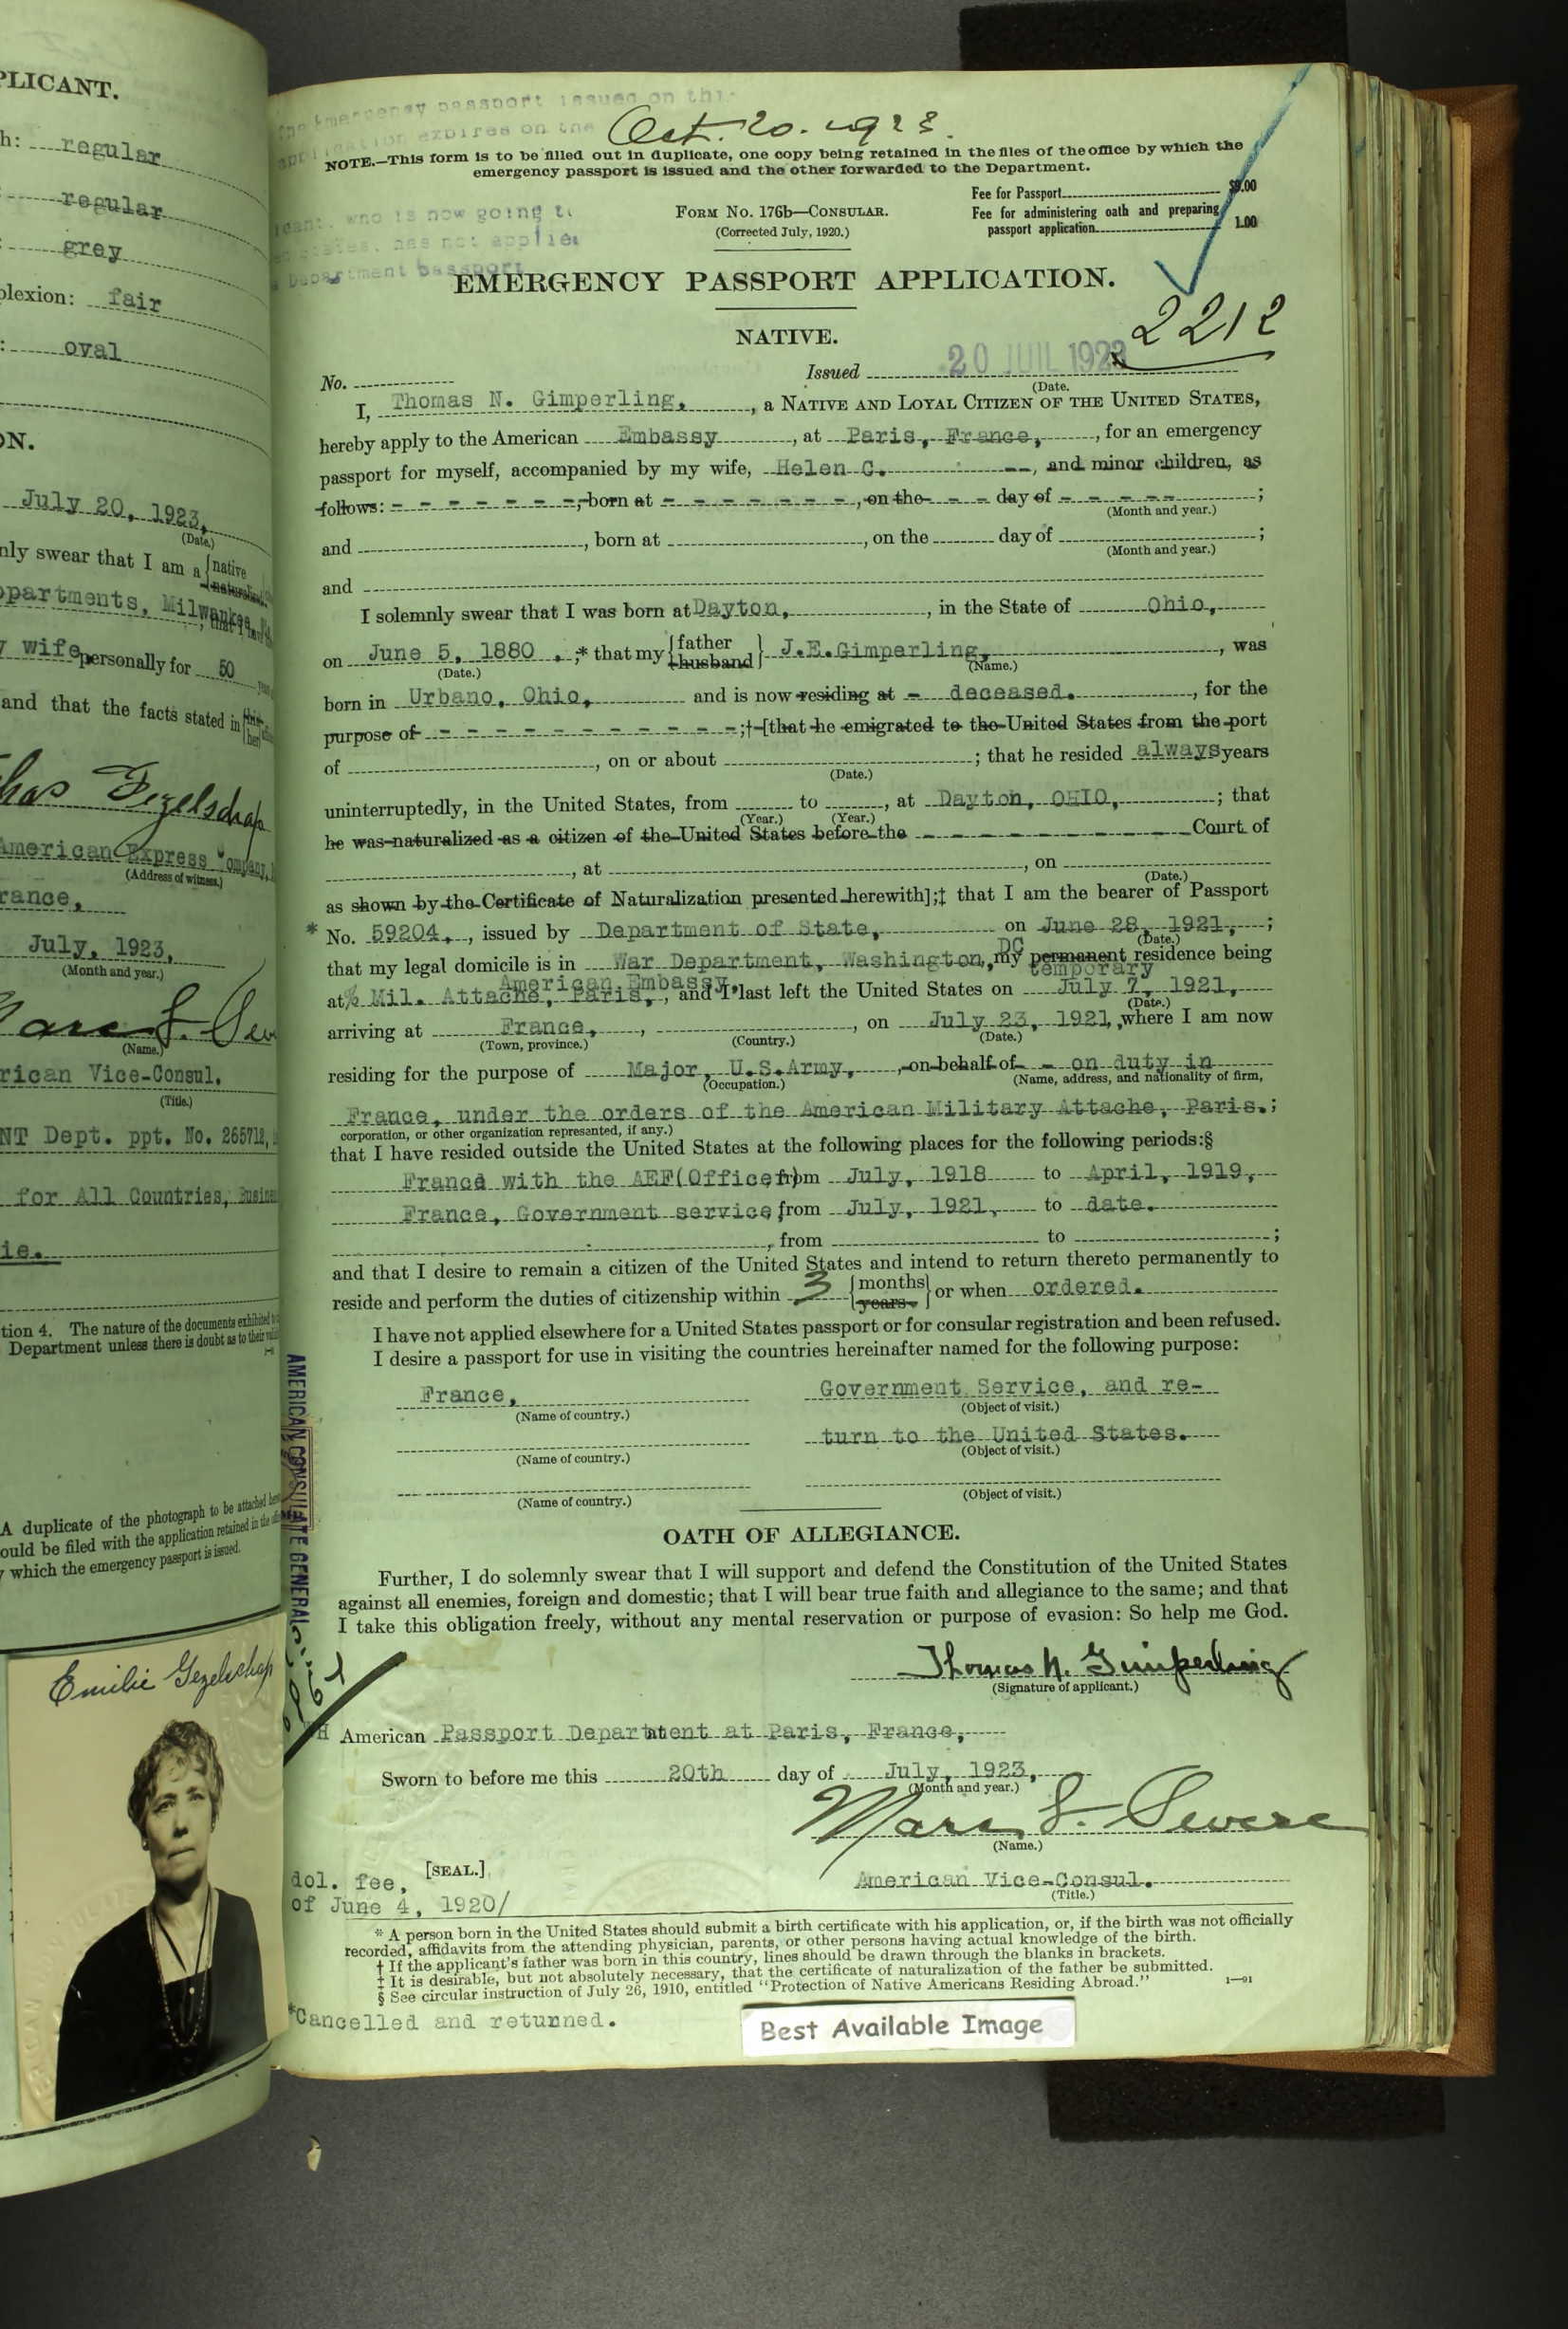 PLICANT.
h: regular
regular
grey
plexion: fair
oval
ON.
July 20, 1923,
(Date.)
nly swear that I am a {native
partments, Milwaukee,
wife personally for 50
and that the facts stated in
Gezelschap
American Express Company,
(Address of witness.)
rance,
July, 1923,
(Month and year.)
(Name.)
rican Vice-Consul.
(Title.)
NT Dept. ppt. No. 265712,
for All Countries,
ie.
tion 4. The nature of the documents exhibited
Department unless there is doubt as to their
A duplicate of the photograph to be attached
ould be filed with the application retained in the
which the emergency passport is issued.
Emilie Gezelschap
emergency passport issued on this
expires on the Oct. 20. 1923.
NOTE.—This form is to be filled out in duplicate, one copy being retained in the files of the office by which the
emergency passport is issued and the other forwarded to the Department.
who is now going to
has not applied
Department passport
Form No. 176b—Consular.
(Corrected July, 1920.)
Fee for Passport $9.00
Fee for administering oath and preparing
passport application 1.00
EMERGENCY PASSPORT APPLICATION.
2212
NATIVE.
No. Issued 20 JUIL 1923
(Date.
I, Thomas N. Gimperling, , a Native and Loyal Citizen of the United States,
hereby apply to the American Embassy, at Paris, France, , for an emergency
passport for myself, accompanied by my wife, Helen C. --, and minor children, as
follows: - - - - - - - -, born at - - - - - - - -, on the - - - day of - - - - - ;
(Month and year.)
and , born at , on the day of ;
(Month and year.)
and
I solemnly swear that I was born at Dayton, , in the State of Ohio,
on June 5, 1880 . ;* that my {father husband} J.E.Gimperling, , was
(Date.) (Name.)
born in Urbano, Ohio, and is now residing at - deceased. , for the
purpose of - - - - - - - - - - - ;† [that he emigrated to the United States from the port
of , on or about ; that he resided always years
(Date.)
uninterruptedly, in the United States, from to , at Dayton, OHIO, ; that
(Year.) (Year.)
he was naturalized as a citizen of the United States before the - - - - - - - - - Court of
, at , on
(Date.)
as shown by the Certificate of Naturalization presented herewith];‡ that I am the bearer of Passport
* No. 59204, , issued by Department of State, on June 28, 1921, ;
(Date.)
that my legal domicile is in War Department, Washington, DC my permanent residence being
temporary
American Embassy,
at % Mil. Attache, Paris, , and I last left the United States on July 7, 1921,
(Date.)
arriving at France, , , on July 23, 1921, , where I am now
(Town, province.) (Country.) (Date.)
residing for the purpose of Major, U.S.Army, , on behalf of - on duty in
(Occupation.) (Name, address, and nationality of firm,
France, under the orders of the American Military Attache, Paris. ;
corporation, or other organization represented, if any.)
that I have resided outside the United States at the following places for the following periods:§
France with the AEF(Officer) from July, 1918 to April, 1919,
France, Government service, from July, 1921, to date.
, from to ;
and that I desire to remain a citizen of the United States and intend to return thereto permanently to
reside and perform the duties of citizenship within 3 {months years} or when ordered.
I have not applied elsewhere for a United States passport or for consular registration and been refused.
I desire a passport for use in visiting the countries hereinafter named for the following purpose:
France, Government Service, and re-
(Name of country.) (Object of visit.)
turn to the United States.
(Name of country.) (Object of visit.)
(Name of country.) (Object of visit.)
AMERICAN CONSULATE GENERAL
OATH OF ALLEGIANCE.
Further, I do solemnly swear that I will support and defend the Constitution of the United States
against all enemies, foreign and domestic; that I will bear true faith and allegiance to the same; and that
I take this obligation freely, without any mental reservation or purpose of evasion: So help me God.
Thomas N. Gimperling
(Signature of applicant.)
American Passport Department at Paris, France,
Sworn to before me this 20th day of July, 1923,
(Month and year.)
(Name.)
[SEAL.]
dol. fee, American Vice-Consul.
(Title.)
of June 4, 1920/
* A person born in the United States should submit a birth certificate with his application, or, if the birth was not officially
recorded, affidavits from the attending physician, parents, or other persons having actual knowledge of the birth.
† If the applicant's father was born in this country, lines should be drawn through the blanks in brackets.
‡ It is desirable, but not absolutely necessary, that the certificate of naturalization of the father be submitted.
§ See circular instruction of July 26, 1910, entitled "Protection of Native Americans Residing Abroad."
1—91
*Cancelled and returned.
Best Available Image